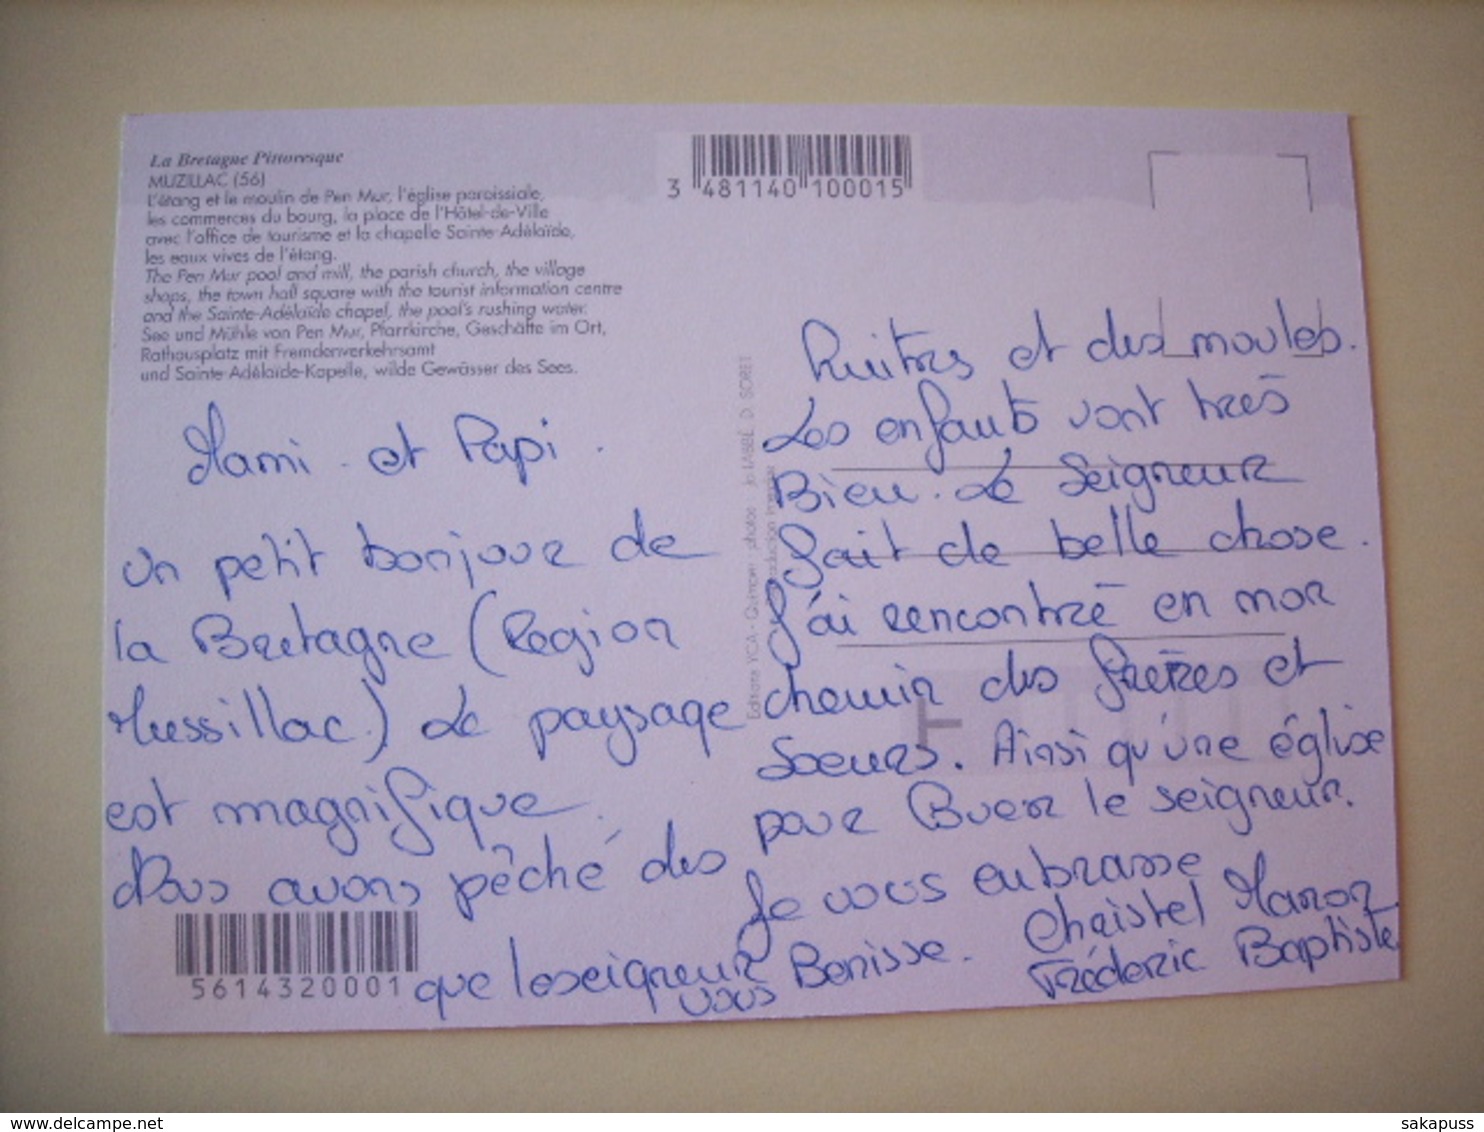 La Bretagne Pittoresque
MUZILLAC (56)
L'étang et le moulin de Pen Mur, l'église paroissiale,
les commerces du bourg, la place de l'Hôtel-de-Ville
avec l'office de tourisme et la chapelle Sainte-Adélaïde,
les eaux vives de l'étang.
The Pen Mur pool and mill, the parish church, the village
shops, the town hall square with the tourist information centre
and the Sainte-Adélaïde chapel, the pool's rushing water.
See und Mühle von Pen Mur, Pfarrkirche, Geschäfte im Ort,
Rathausplatz mit Fremdenverkehrsamt
und Sainte-Adélaïde-Kapelle, wilde Gewässer des Sees.
3 481140 100015
Mami et Papi.
un petit bonjour de
la Bretagne (Region
Mussillac.) Le paysage
est magnifique.
Nous avons pêché des
Huitres et des moules.
Les enfants vont très
Bien. Le Seigneur
fait de belle chose.
J'ai rencontré en mon
chemin des frères et
soeurs. Ainsi qu'une église
pour Louer le seigneur.
Je vous enbrasse
Christel Manon
Fréderic Baptiste
que le seigneur
vous Benisse.
5614320001
Editions YCA - Quimper - photos : Jo LABBÉ, D. SORET
Reproduction interdite
delcampe.net
sakapuss